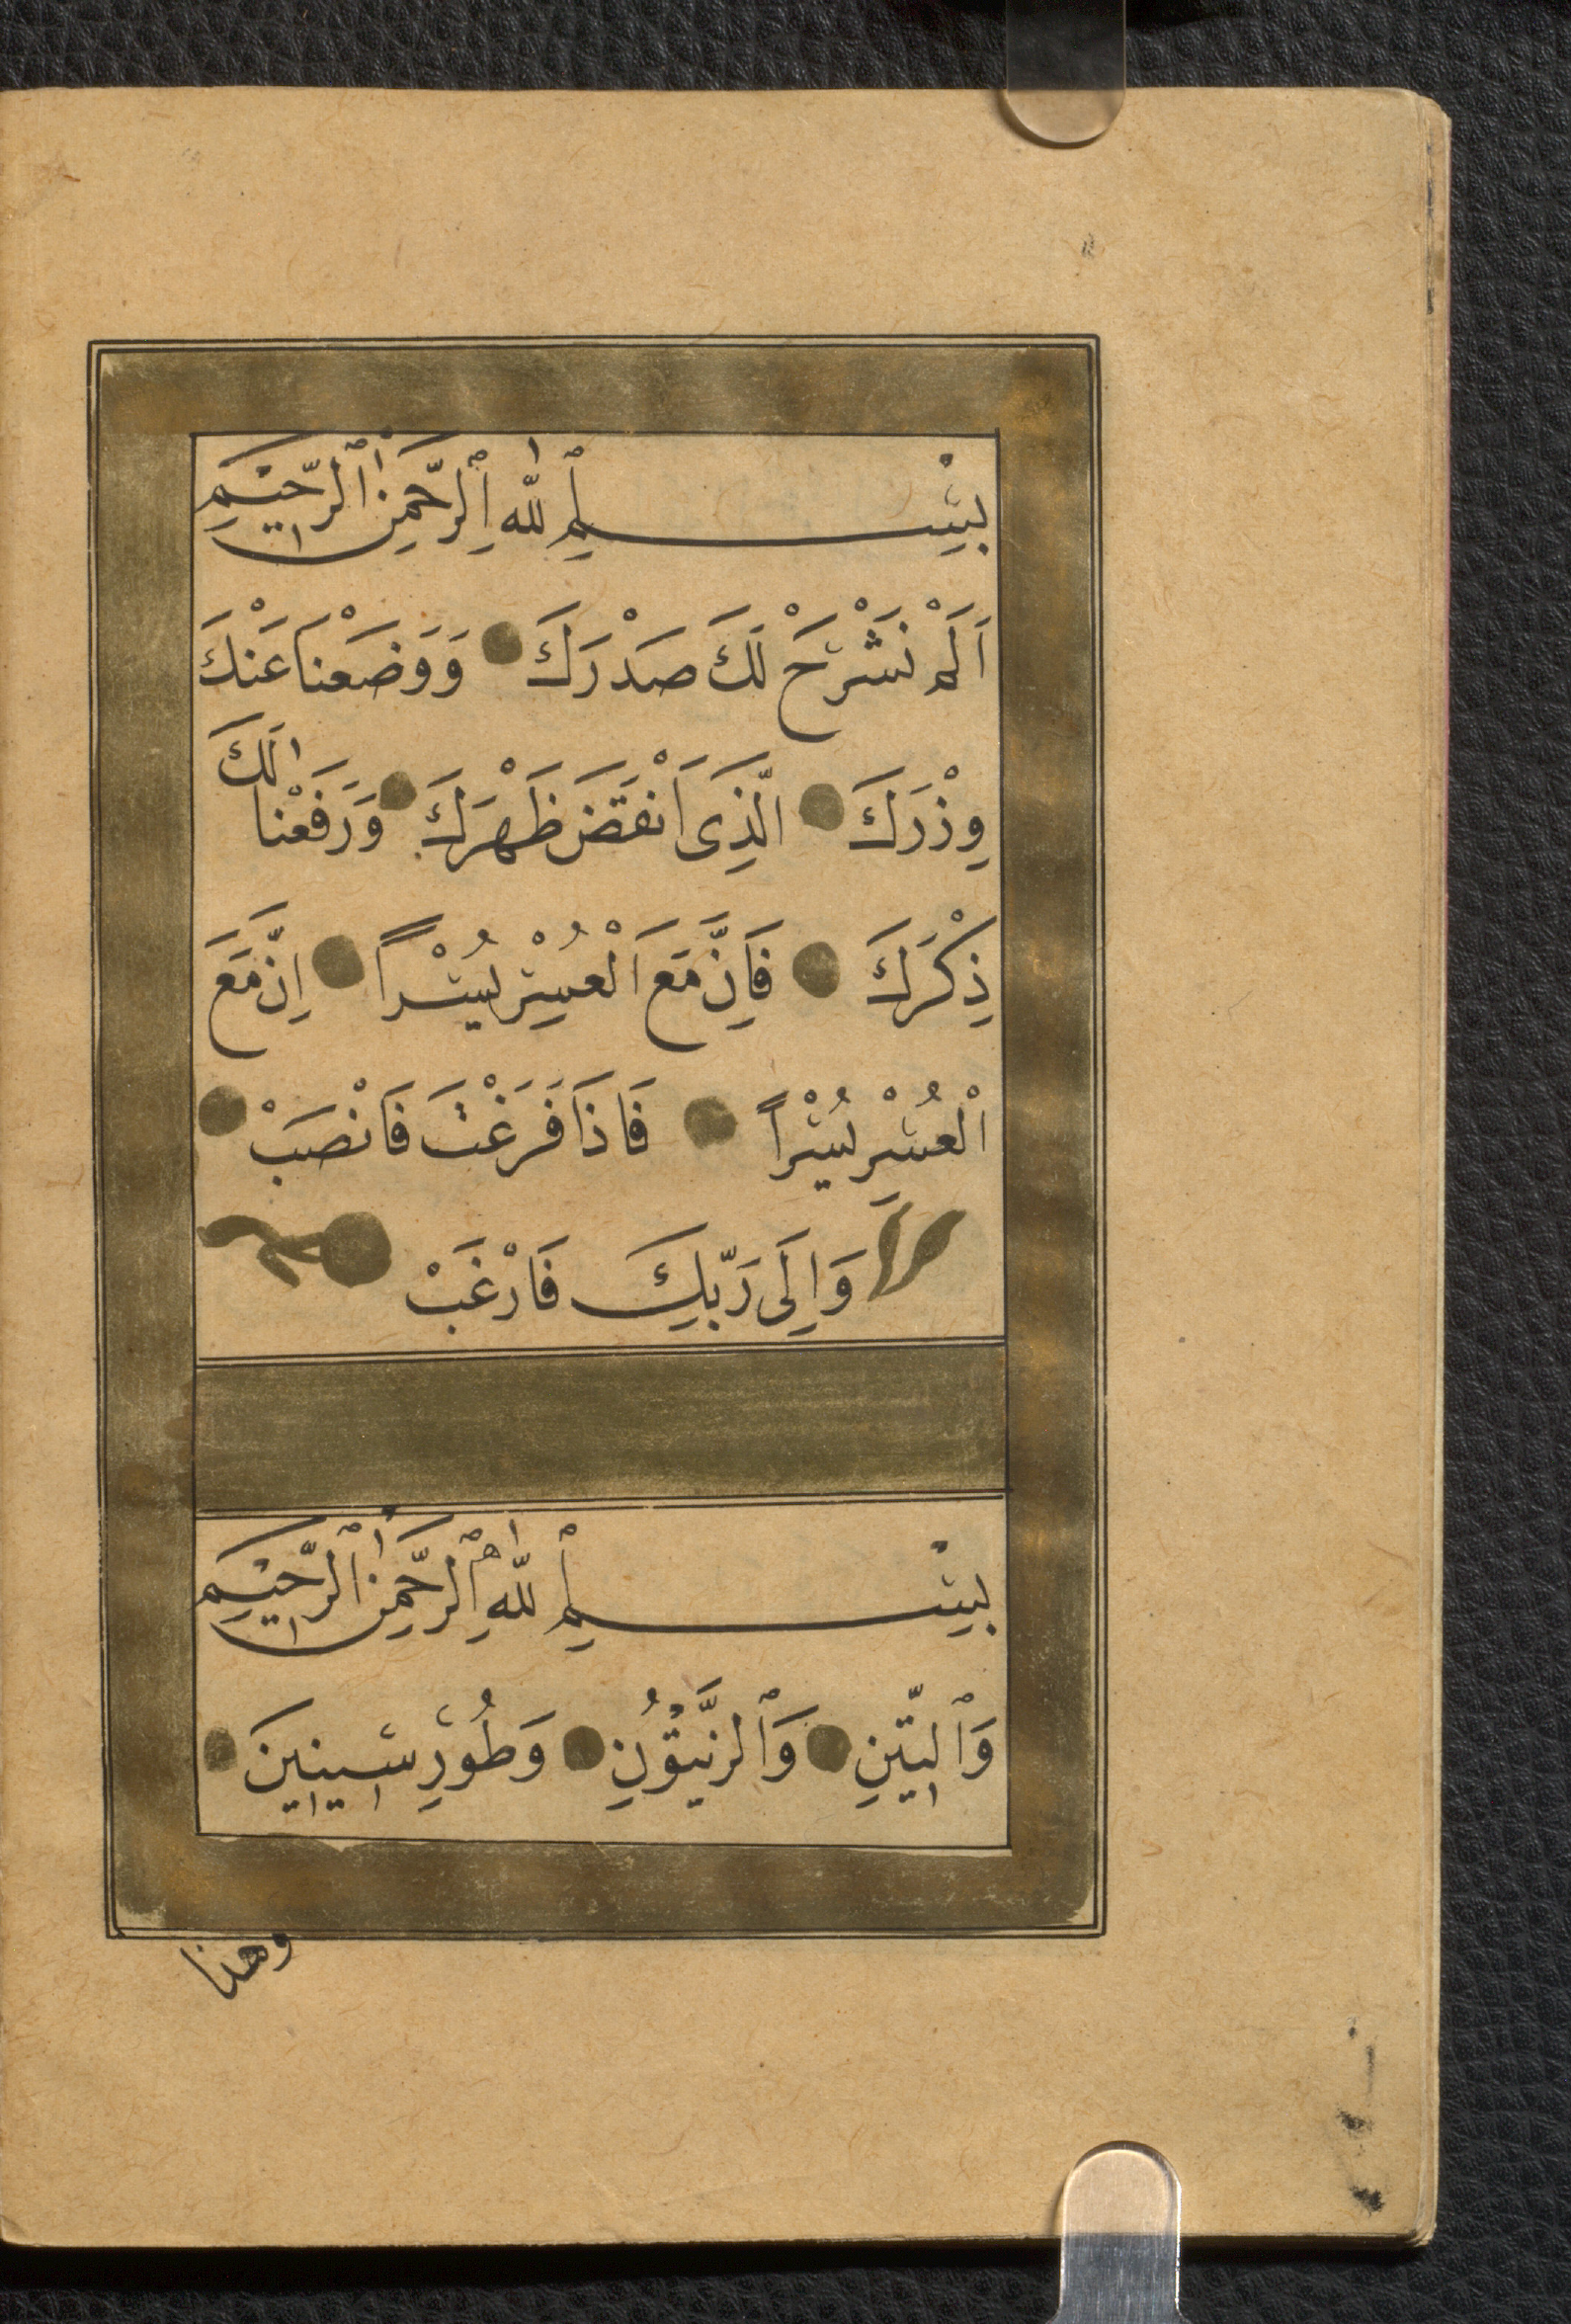 بِسْمِ ٱللّٰهِ ٱلرَّحْمٰنِ ٱلرَّحِيْمِ
اَلَمْ نَشْرَحْ لَكَ صَدْرَكَ وَوَضَعْنَا عَنْكَ
وِزْرَكَ الَّذِى اَنْقَضَ ظَهْرَكَ وَرَفَعْنَا لَكَ
ذِكْرَكَ فَاِنَّ مَعَ الْعُسْرِ يُسْرًا اِنَّ مَعَ
الْعُسْرِ يُسْرًا فَاِذَا فَرَغْتَ فَانْصَبْ
وَاِلَى رَبِّكَ فَارْغَبْ
بِسْمِ ٱللّٰهِ ٱلرَّحْمٰنِ ٱلرَّحِيْمِ
وَٱلتِّينِ وَٱلزَّيْتُونِ وَطُورِ سِينِينَ
وهذا